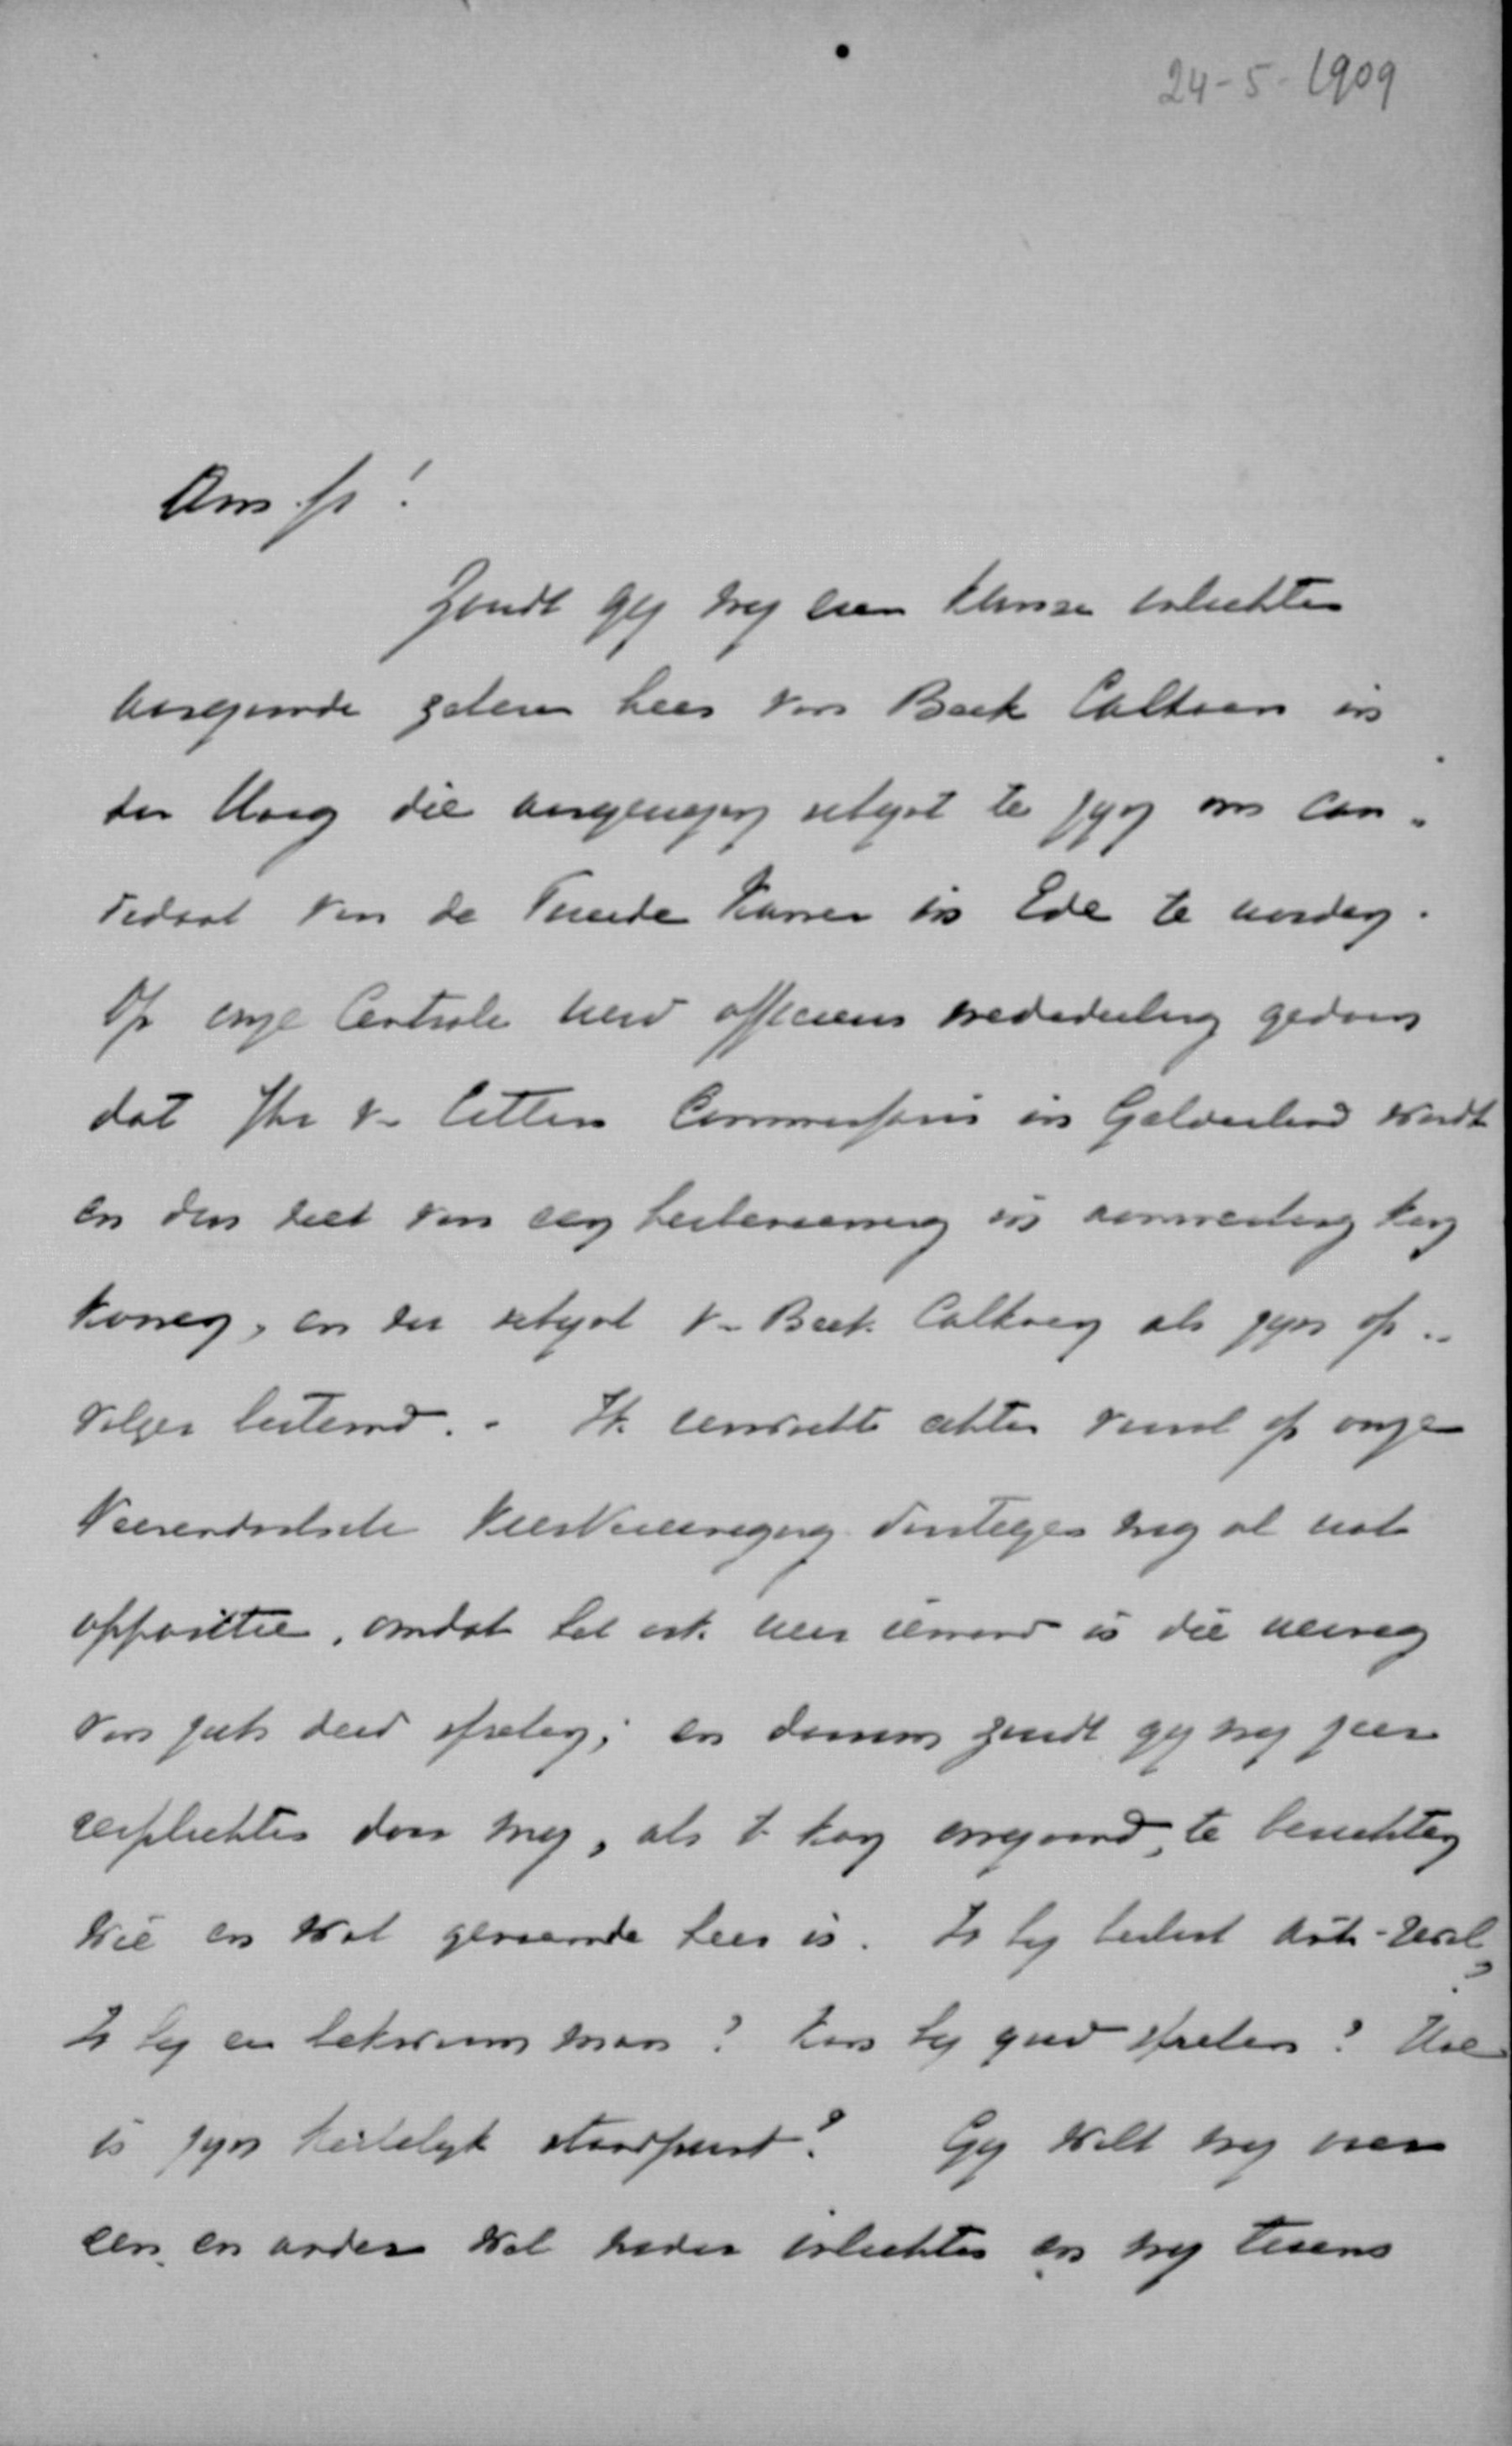 24-5-1909
Am. fr!
Zoudt gij mij eens kunnen inlichten
aangaande zekeren heer van Beek Calkoen in
den Haag die aangewezen schijnt te zijn om can-
didaat van de Tweede Kamer in Ede te worden.
Op onze Centrale werd officieus mededeeling gedaan
dat Jhr v. Citters Commissaris in Gelderland wordt
en dus niet van een herbenoeming in aanmerking kan
komen, en nu schijnt v. Beek Calkoen als zijn op-
volger bestemd. - Ik verwacht echter vanuit op onze
Veenendaalsche Kiesvereeniging dientegen nog al wat
oppositie, omdat het ook weer iemand is die weinig
van zich deed spreken; en daarom zoudt gij mij zeer
verplichten door mij, als 't kan omgaand, te berichten
wie en wat genoemde heer is. Is hij beslist anti-rev?
Is hij een bekwaam man? Kan hij goed spreken? Hoe
is zijn kerkelijk standpunt? Gij wilt mij over
een en ander wel nader inlichten en mij tevens